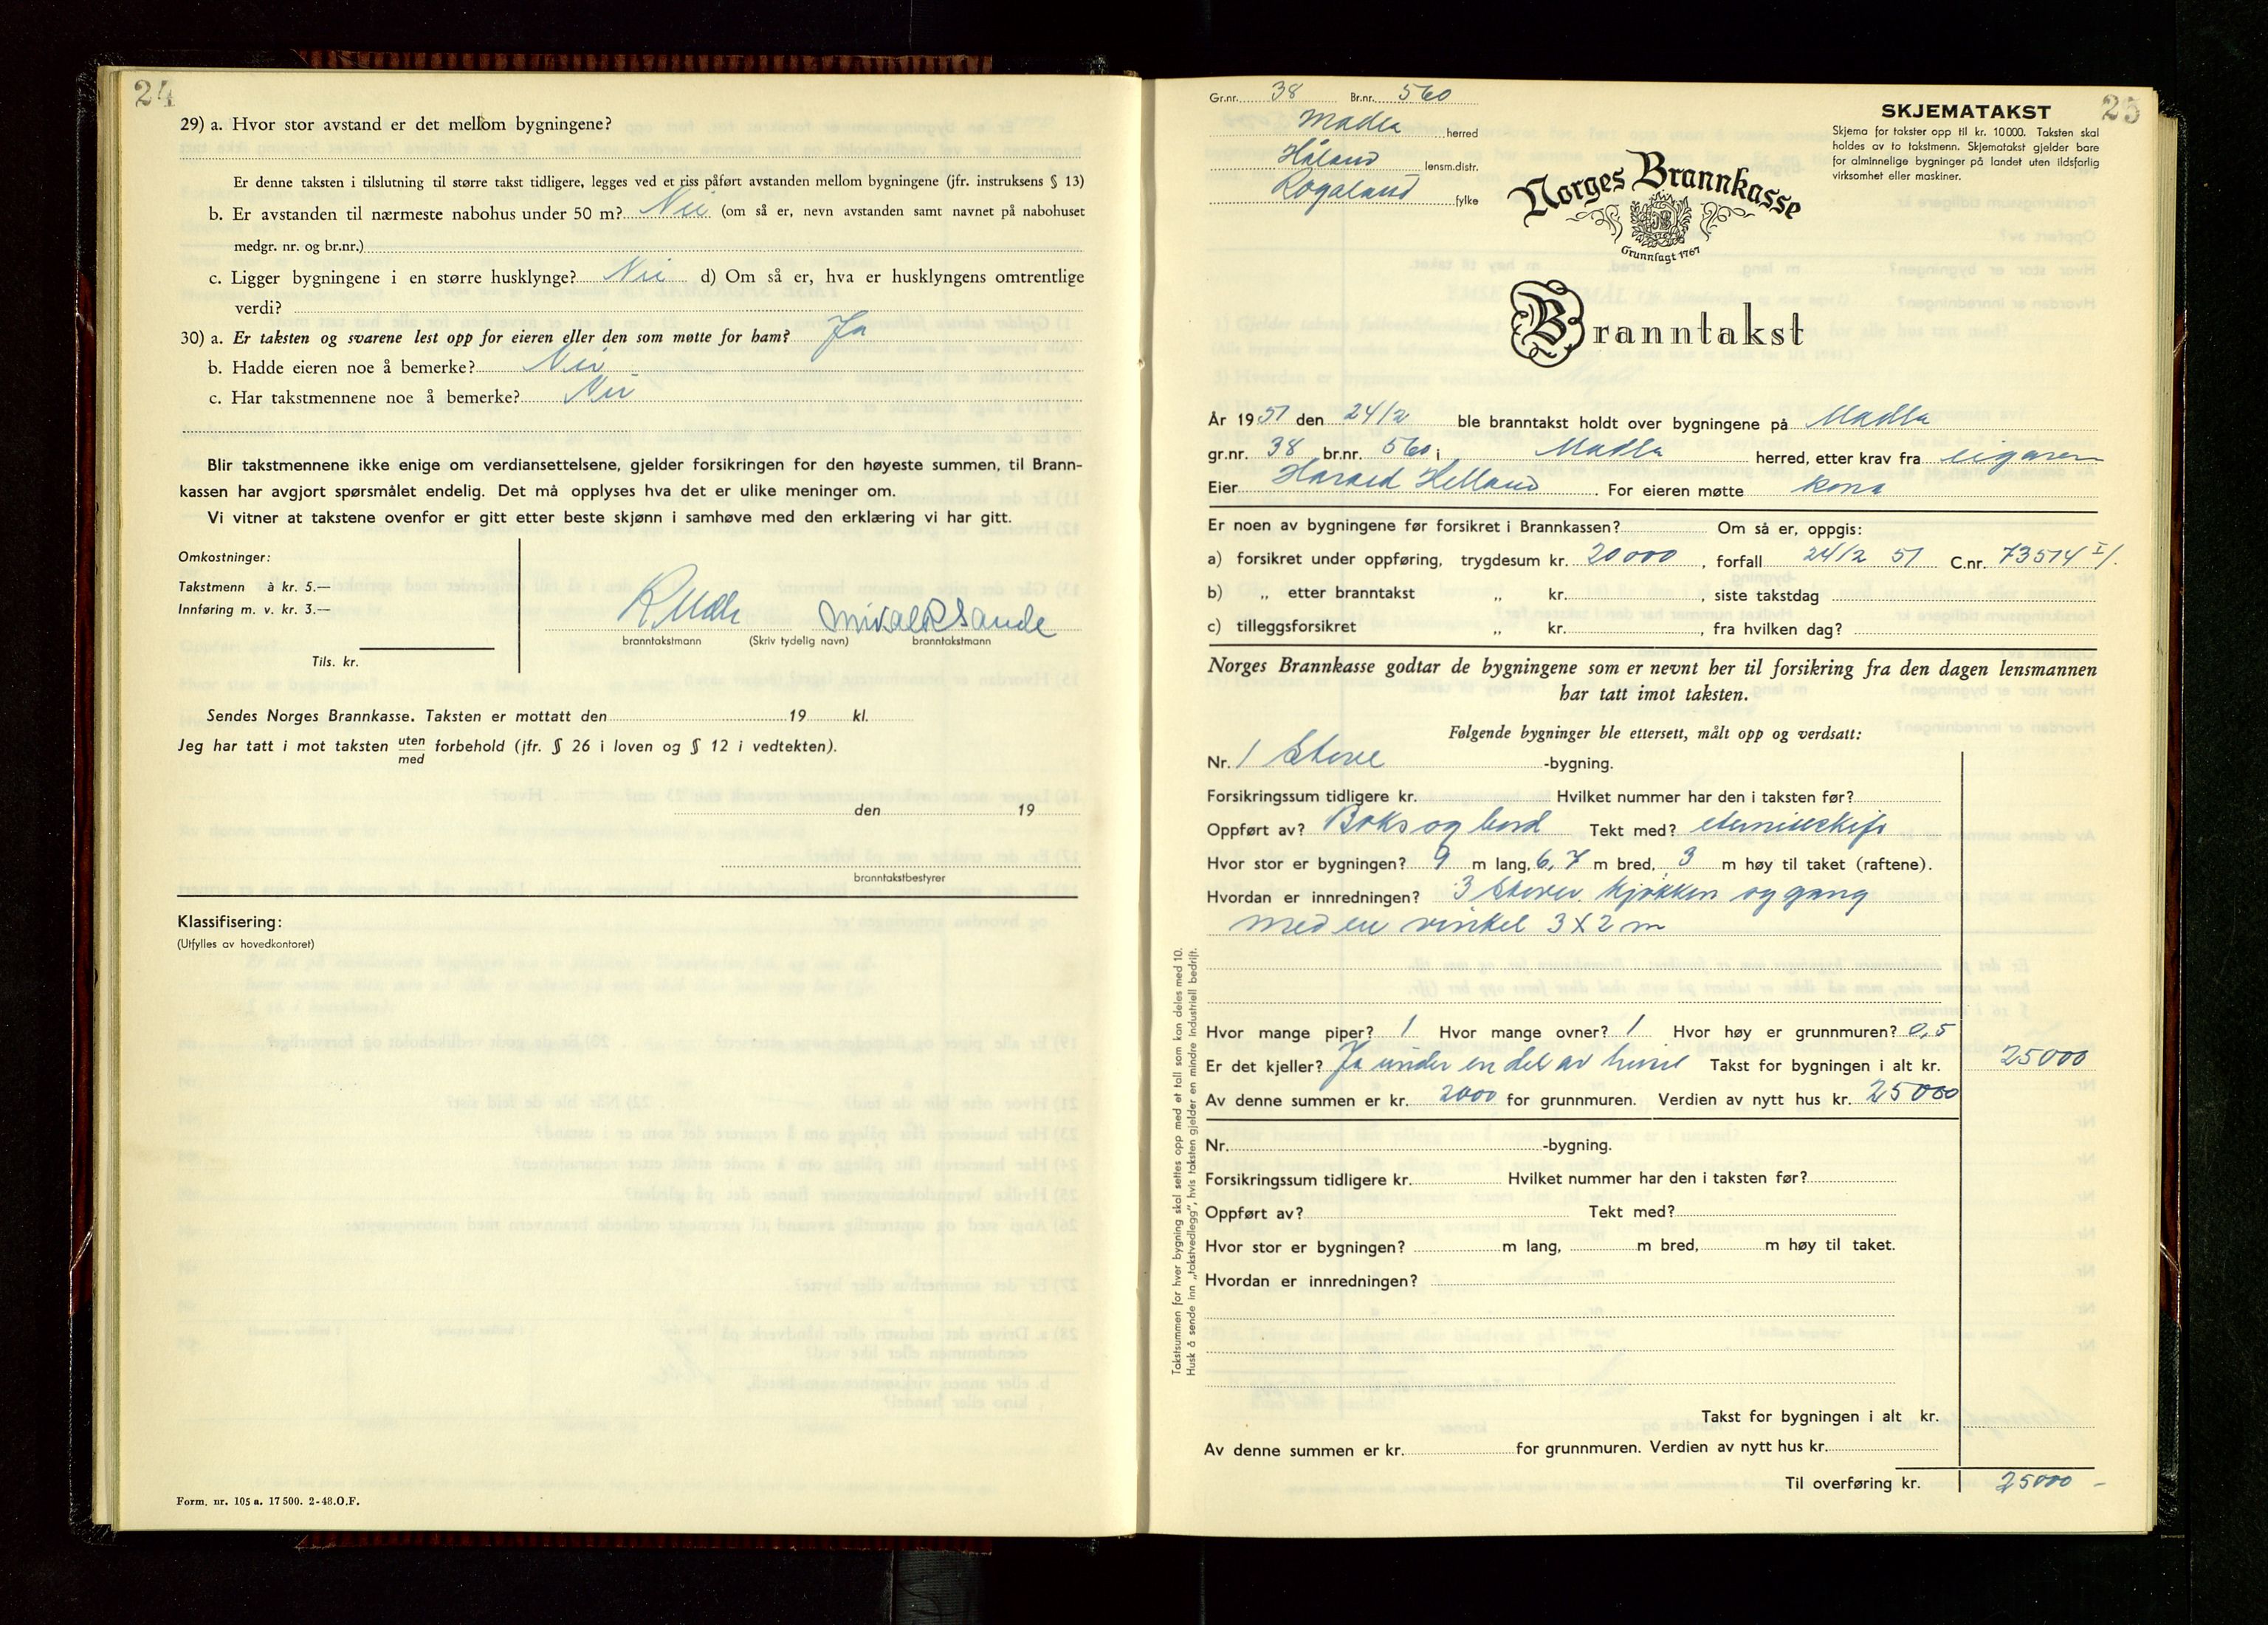 24
29) a. Hvor stor avstand er det mellom bygningene?
Er denne taksten i tilslutning til større takst tidligere, legges ved et riss påført avstanden mellom bygningene (jfr. instruksens § 13)
b. Er avstanden til nærmeste nabohus under 50 m? Nei (om så er, nevn avstanden samt navnet på nabohuset
medgr. nr. og br.nr.)
c. Ligger bygningene i en større husklynge? Nei d) Om så er, hva er husklyngens omtrentlige
verdi?
30) a. Er taksten og svarene lest opp for eieren eller den som møtte for ham? Ja
b. Hadde eieren noe å bemerke? Nei
c. Har takstmennene noe å bemerke? Nei
Blir takstmennene ikke enige om verdiansettelsene, gjelder forsikringen for den høyeste summen, til Brann-
kassen har avgjort spørsmålet endelig. Det må opplyses hva det er ulike meninger om.
Vi vitner at takstene ovenfor er gitt etter beste skjønn i samhøve med den erklæring vi har gitt.
Omkostninger:
Takstmenn à kr. 5.—
Innføring m. v. kr. 3.—
Tils. kr.
Sande
branntakstmann (Skriv tydelig navn) branntakstmann
Sendes Norges Brannkasse. Taksten er mottatt den 19 kl.
Jeg har tatt i mot taksten uten med forbehold (jfr. § 26 i loven og § 12 i vedtekten).
den 19
branntakstbestyrer
Klassifisering:
(Utfylles av hovedkontoret)
Form. nr. 105 a. 17 500. 2-48.O.F.
25
Gr.nr. 38 Br.nr. 560
Madla herred
Håland lensm.distr.
Rogaland fylke
SKJEMATAKST
Skjema for takster opp til kr. 10 000. Taksten skal
holdes av to takstmenn. Skjematakst gjelder bare
for alminnelige bygninger på landet uten ildsfarlig
virksomhet eller maskiner.
Norges Brannkasse
Grunnlagt 1767
Branntakst
År 1951 den 24/2 ble branntakst holdt over bygningene på Madla
gr.nr. 38 br.nr. 560 i Madla herred, etter krav fra eigaren
Eier Harald Helland For eieren møtte kona
Er noen av bygningene før forsikret i Brannkassen? Om så er, oppgis:
a) forsikret under oppføring, trygdesum kr. 20000, forfall 24/2 51 C.nr. 73514 I/1.
b) „ etter branntakst „ kr. , siste takstdag
c) tilleggsforsikret „ kr. , fra hvilken dag?
Norges Brannkasse godtar de bygningene som er nevnt her til forsikring fra den dagen lensmannen
har tatt imot taksten.
Følgende bygninger ble ettersett, målt opp og verdsatt:
Nr. 1 Stove -bygning.
Forsikringssum tidligere kr. Hvilket nummer har den i taksten før?
Oppført av? Boks og bord Tekt med? eternittskifr
Hvor stor er bygningen? 9 m lang, 6,7 m bred, 3 m høy til taket (raftene).
Hvordan er innredningen? 3 Stover. kjøkken og gang
med en vinkel 3 X 2 m
Hvor mange piper? 1 Hvor mange ovner? 1 Hvor høy er grunnmuren? 0,5
Er det kjeller? Ja under en del av huset Takst for bygningen i alt kr. 25000
Av denne summen er kr. 2000 for grunnmuren. Verdien av nytt hus kr. 25000
Nr. -bygning.
Forsikringssum tidligere kr. Hvilket nummer har den i taksten før?
Oppført av? Tekt med?
Hvor stor er bygningen? m lang, m bred, m høy til taket.
Hvordan er innredningen?
Takst for bygningen i alt kr.
Av denne summen er kr. for grunnmuren. Verdien av nytt hus kr.
Til overføring kr. 25000 -
Takstsummen for hver bygning skal settes opp med et tall som kan deles med 10.
Husk å sende inn „takstvedlegg”, hvis taksten gjelder en mindre industriell bedrift.